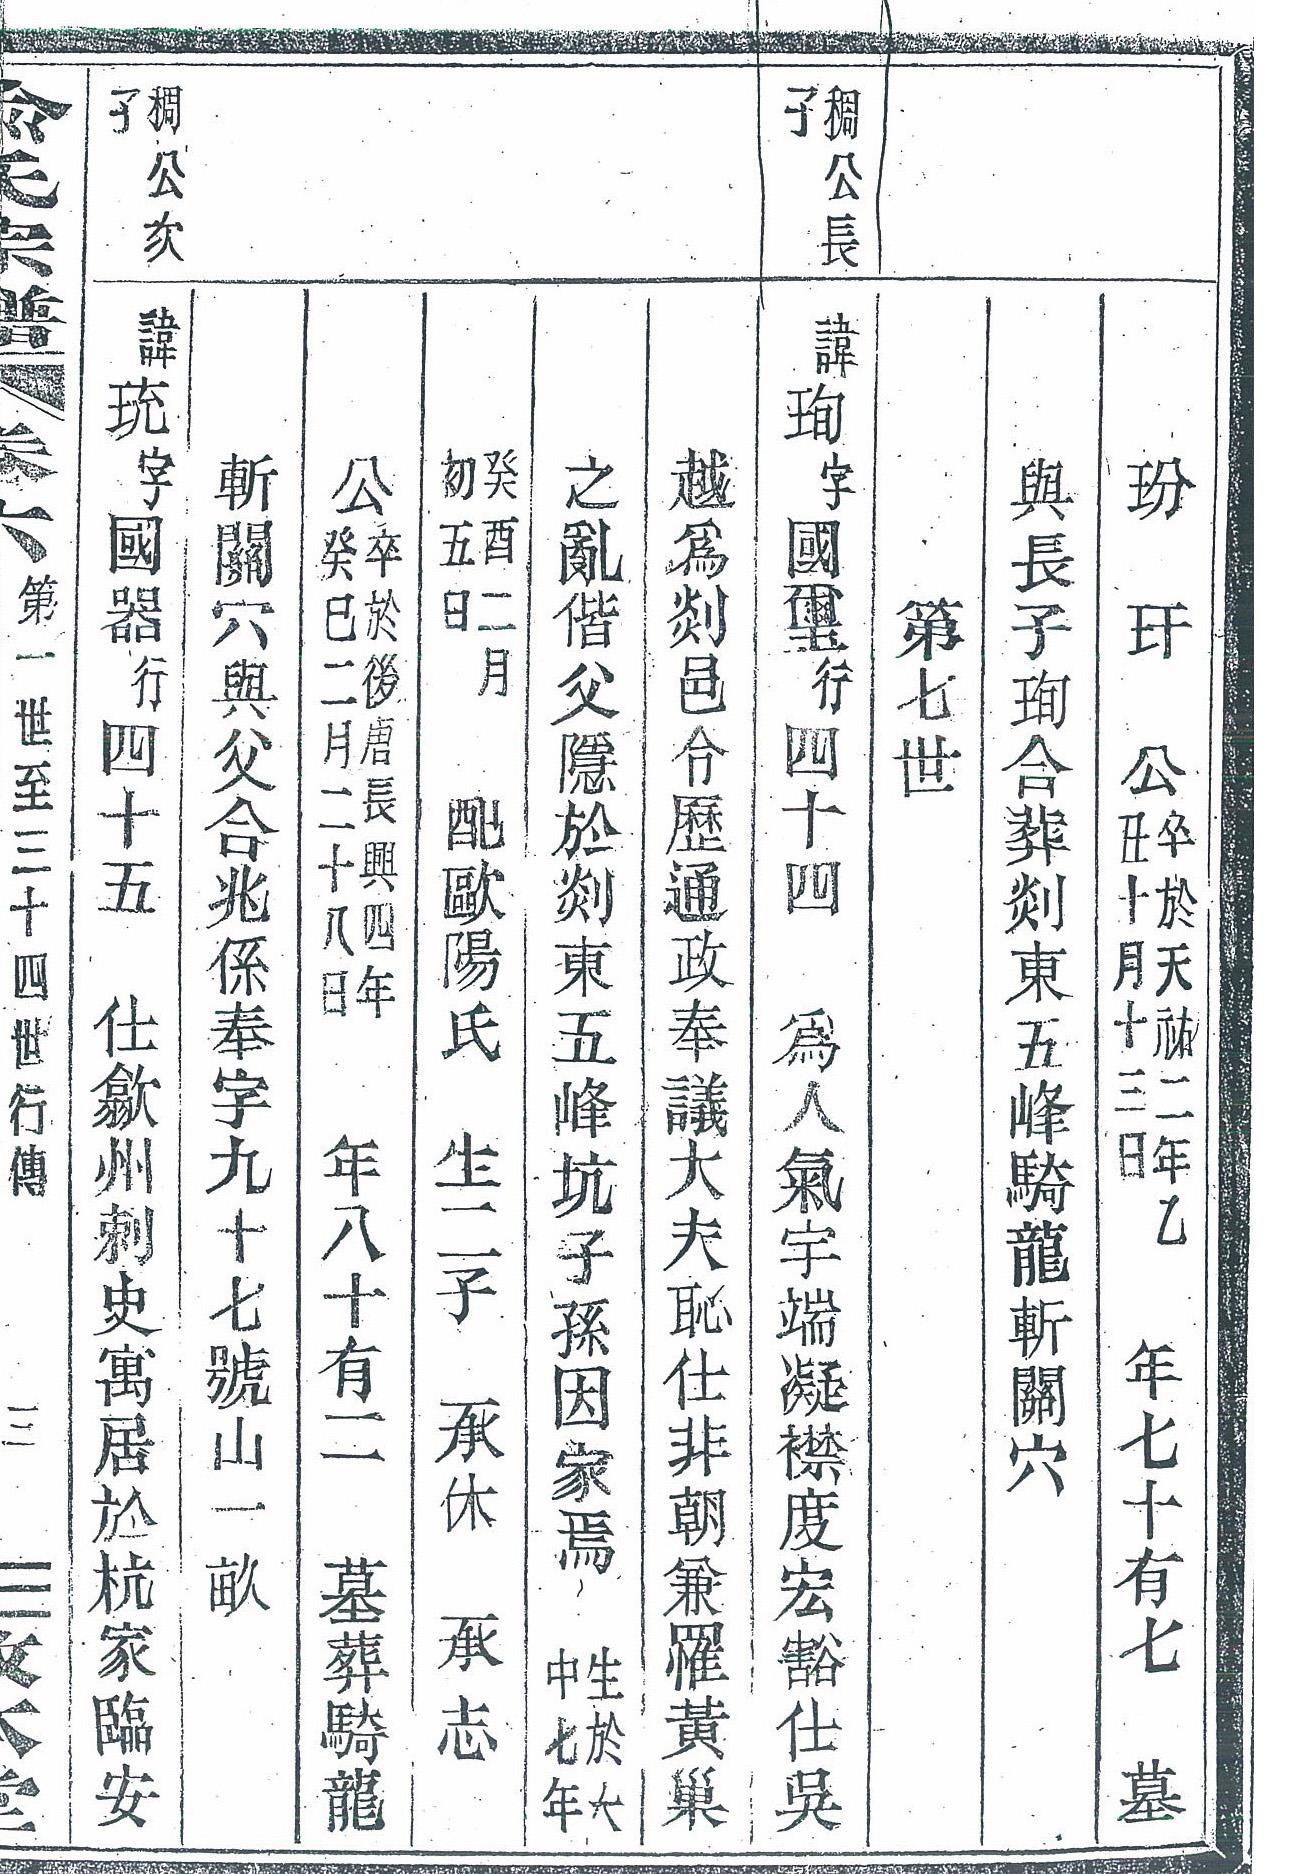 玢　玗　公卒於天祐二年乙丑十月十三日　年七十有七　墓
與長子珣合葬剡東五峰騎龍斬關穴
第七世
稠公長子
諱珣字國璽行四十四　為人氣宇端凝襟度宏豁仕吳
越爲剡邑令歷通政奉議大夫恥仕非朝兼罹黃巢
之亂偕父隱於剡東五峰坑子孫因家焉　生於大中七年
癸酉二月初五日　配歐陽氏　生二子　承休　承志
公卒於後唐長興四年癸巳二月二十八日　年八十有二　墓葬騎龍
斬關穴與父合兆係奉字九十七號山一畝
稠公次子
諱珫字國器行四十五　仕歙州刺史寓居於杭家臨安
俞氏宗譜　卷六　第一世至三十四世行傳　三